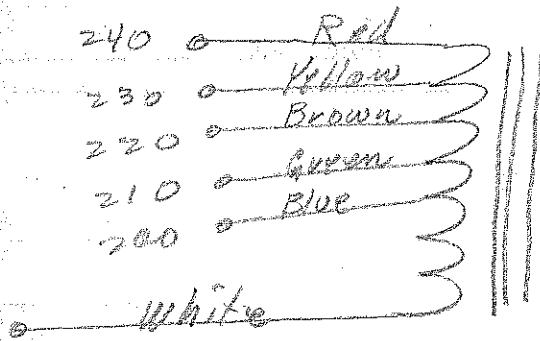 240 Red
230 Yellow
220 Brown
210 Green
200 Blue
White